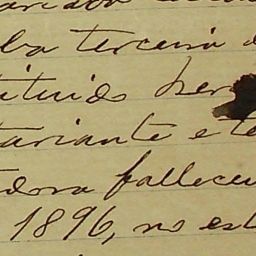 ba terceira
tituido her
tariante e te
dora falleceu
1896, no est